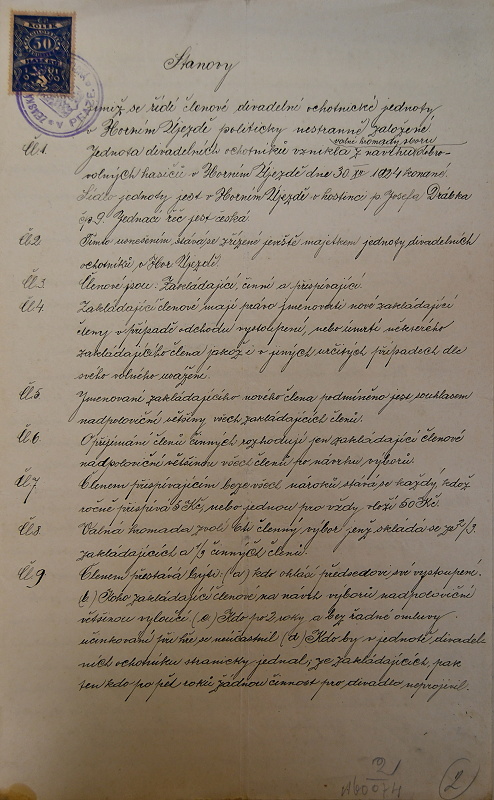 KOLEK
50
Stanovy
jimiž se řídí členové divadelně ochotnické jednoty
v Horním Újezdě politicky nestranně založené
valné hromady sboru
Čl.1. Jednota divadelních ochotníků vznikla z návrhu dobro-
volných hasičů v Horním Újezdě dne 30 1924 konané.
Sídlo jednoty jest v Horním Újezdě v hostinci p. Josefa Drábka
čp. 9. Jednací řeč jest česká.
Čl.2. Tímto usnesením stává se zřízené jeviště majetkem jednoty divadelních
ochotníků v Hor Újezdě.
Čl.3. Členové jsou: Zakládající, činní a přispívající.
Čl.4. Zakládající členové mají právo jmenovati nové zakládající
členy v případě odchodu vystoupení, nebo úmrtí některého
zakládajícího člena jakož i v jiných určitých případech dle
svého volného uvážení.
Čl.5. Jmenování zakládajícího nového člena podmíněno jest souhlasem
nadpoloviční většiny všech zakládajících členů.
Čl.6. O přijímání členů činných rozhodují jen zakládající členové
nadpoloviční většinou všech členů po návrhu výborů.
Čl.7. Členem přispívajícím beze všech nároků stává se každý, kdož
ročně přispívá 5 Kč, nebo jednou pro vždy vloží 50 Kč.
Čl.8. Valná hromada zvolí členný výbor jenž skládá se ze 2/3
zakládajících a 1/3 činných členů.
Čl.9. Členem přestává býti: (a) kdo ohlásí předsedovi své vystoupení.
(b) Koho zakládající členové na návrh výboru nadpoloviční
většinou vyloučí (c) Kdo po 2 roky a bez řádné omluvy
účinkování při hře se neúčastnil (d) Kdo by v jednotě divadel-
ních ochotníků stranicky jednal; ze zakládajících pak
ten kdo po pět roků žádnou činnost pro divadlo neprojevil.
2